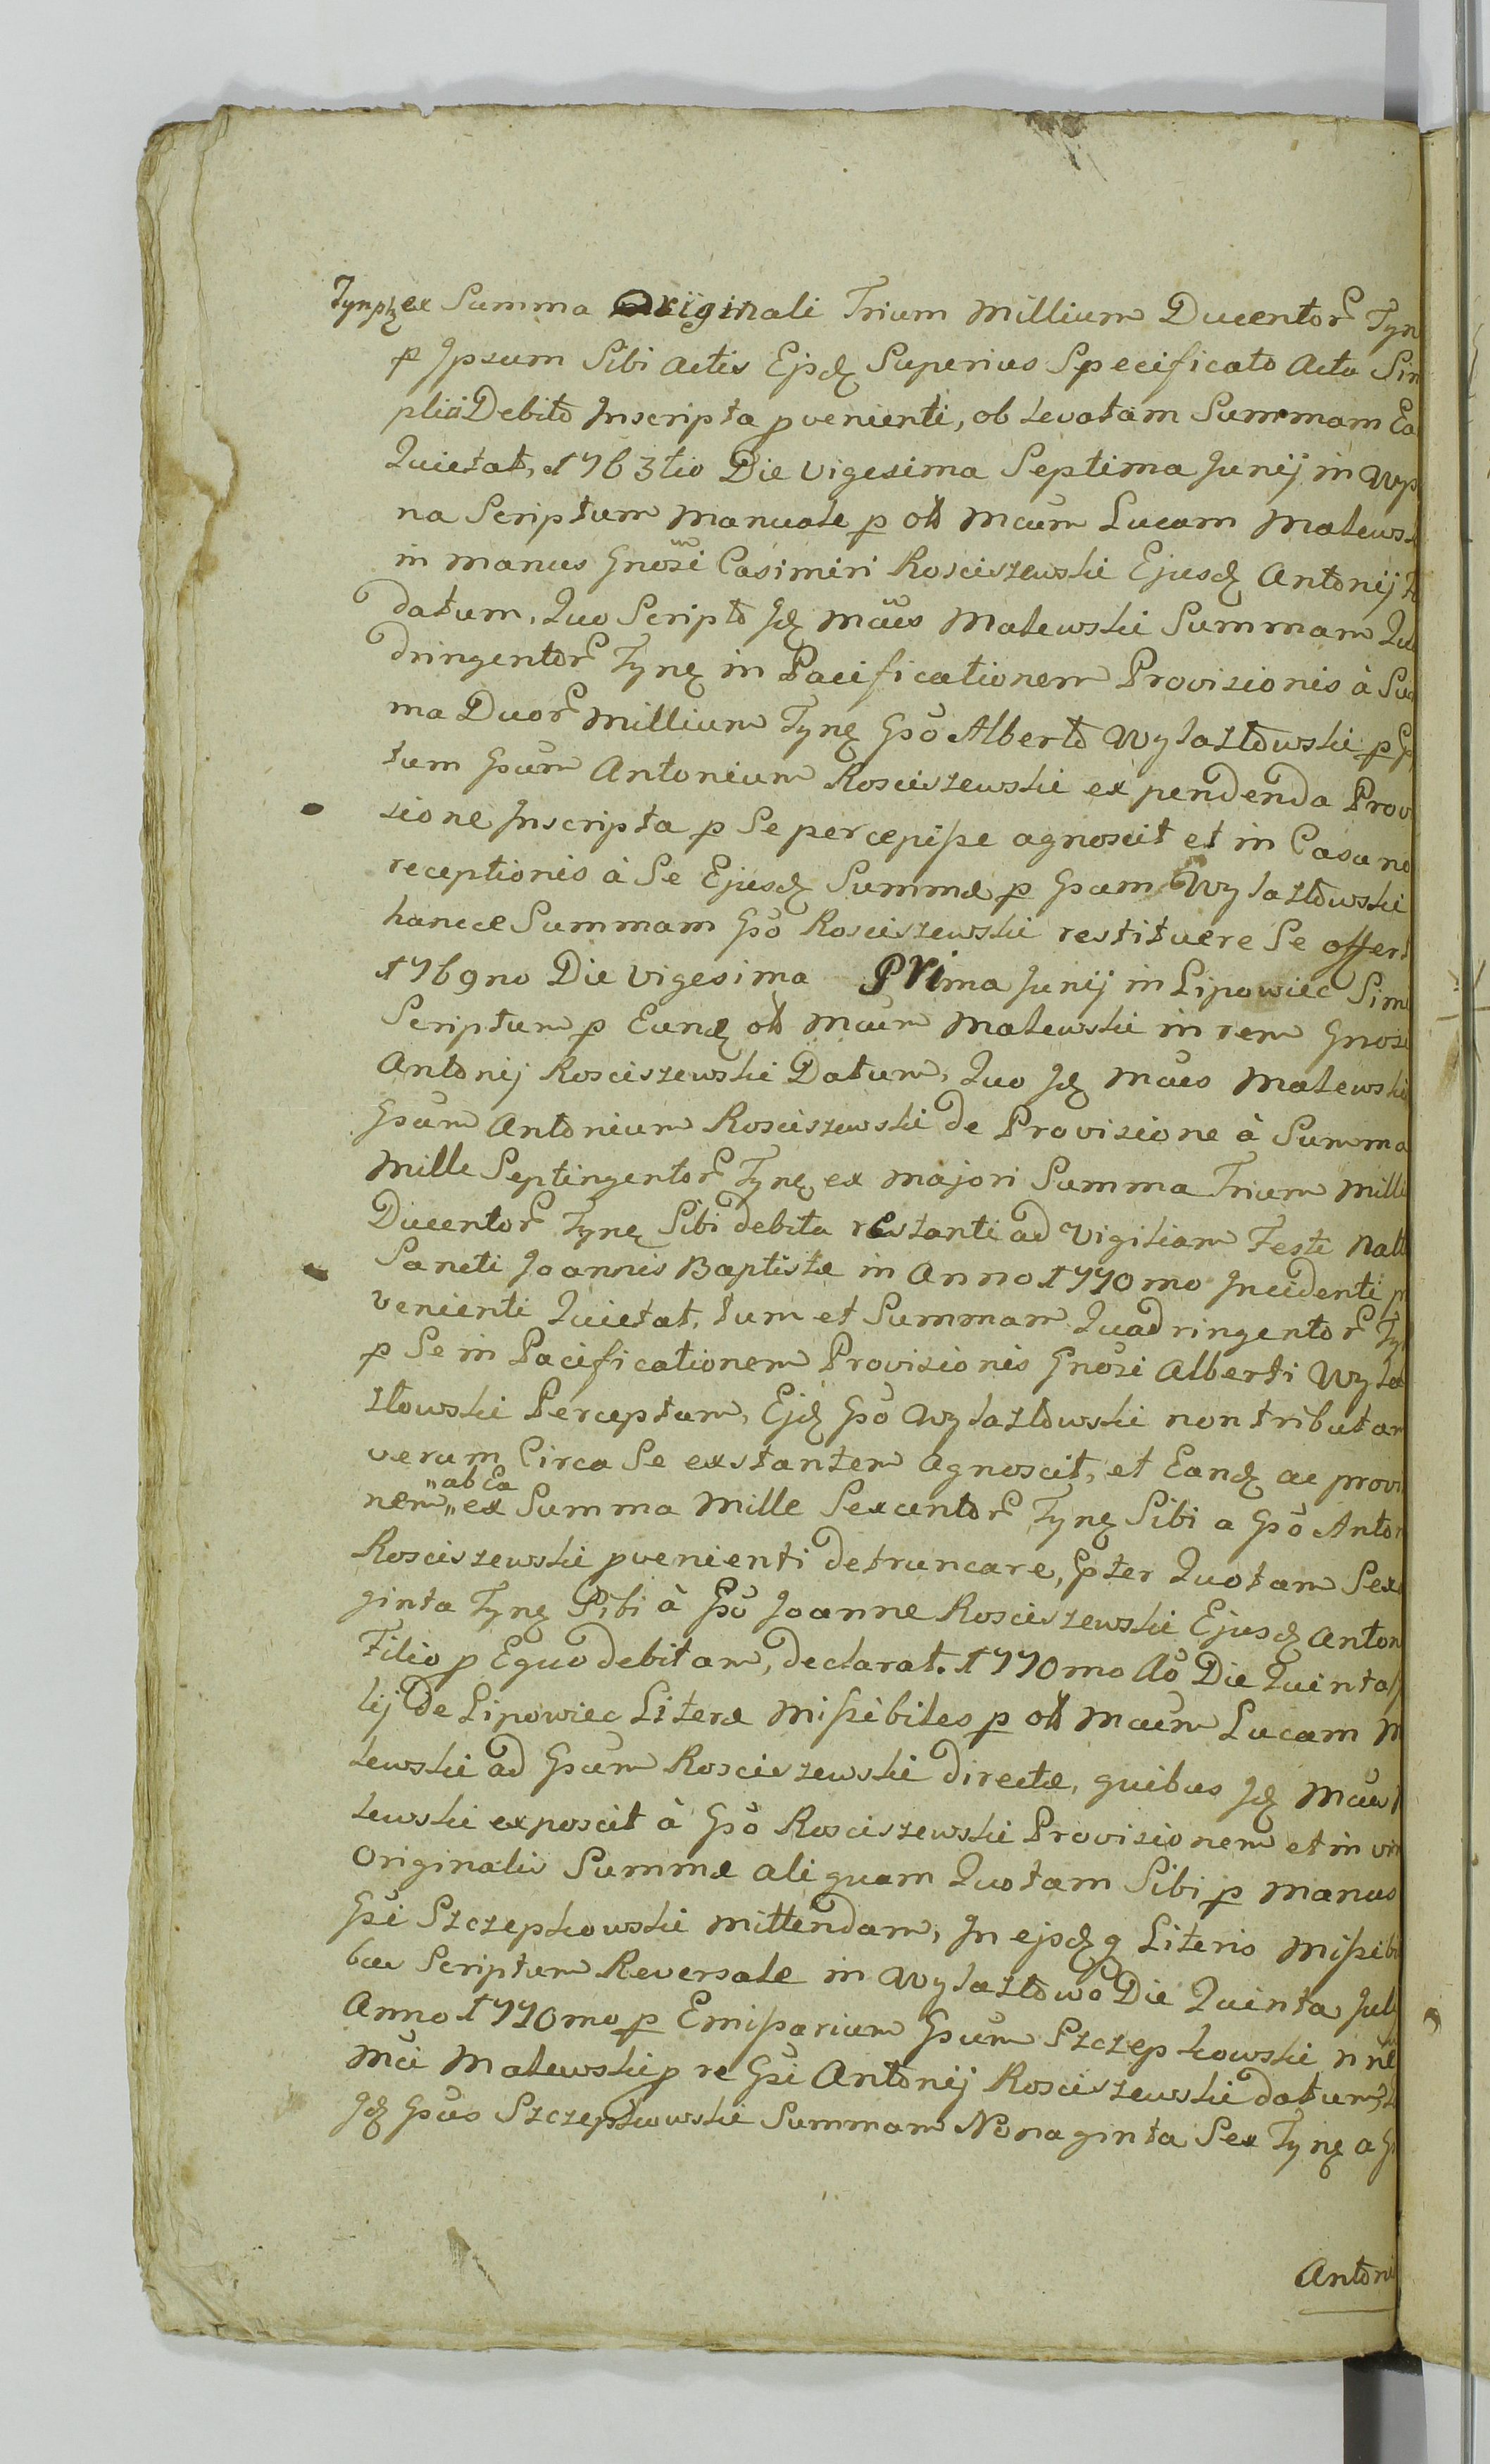 Tynpȝ ex Summa Originali Trium Millium Ducentor Tyn
p Ipsum Sibi Actis Ejsdȝ Superius Specificato Acto Sim
plici Debito Inscripta pvenienti, ob levatam Summam Ea
Quietat, 1763tio Die Vigesima Septima Junij in Wyp
na Scriptum Manuale p olt Mcum Lucam Malews
in manus Gnosi Casimiri Rosciszewski Ejusdȝ Antonij
datum, Quo Scripto Idȝ Mcus Malewski Summam Qu
dringentor Tynȝ in Pacificationem Provisionis à Su
ma Duor Millium Tynȝ Gso Alberto Wylazłowski p
tum Gsum Antonium Rosciszewski ex pendenda Prov
sione Inscripta p Se percepisse agnoscit et in Casu no
receptionis à Se Ejusdȝ Summæ p Gsum Wylazłowski
hancce Summam Gso Rosciszewski restituere Se offert
1769no Die Vigesima Prima Junij in Lipowiec Sim
Scriptum p Eundȝ olt Mcum Malewski in rem Gnosi
Antonij Rosciszewski Datum, Quo Idȝ Mcus Malewski
Gsum Antonium Rosciszewski de Provisione à Summa
Mille Septingentor Tynȝ ex majori Summa Trium Milli
Ducentor Tynȝ Sibi debita restanti ad Vigiliam Festi Natt
Sancti Joannis Baptistæ in Anno 1770mo Incidenti p
venienti Quietat, tum et Summam Quadringentor Ty
p Se in Pacificationem Provisionis Gnosi Alberti Wyla
złowski Perceptam, Ejdȝ Gso Wylazłowski non tributam
verum Circa Se exstantem Agnoscit, et Eandȝ ac provi
nem „ab Ea„ ex Summa Mille Sexcentor Tynȝ Sibi a Gso Anton
Rosciszewski pvenienti detruncare, Ppter Quotam Sexa
ginta Tynȝ Sibi à Gso Joanne Rosciszewski Ejusdȝ Anton
Filio p Equo debitam, declarat. 1770mo Ao Die Quinta
lij de Lipowiec Literæ Missibiles p olt Mcum Lucam M
lewski ad Gsum Rosciszewski directæ, quibus Idȝ Mcus
lewski exposcit à Gso Rosciszewski Provisionem et in vi
Originalis Summæ aliquam Quotam Sibi p manus
Gsi Szczepkowski mittendam, In ejsdȝ q Literis Missibi
bus Scriptum Reversale in Wylazłowo Die Quinta Jul
Anno 1770mo p Emissarium Gsum Szczepkowski nne
Mci Malewski p re Gsi Antonij Rosciszewski datum,
Idȝ Gsus Szczepkowski Summam Nonaginta Sex Tynȝ a G
Antoni